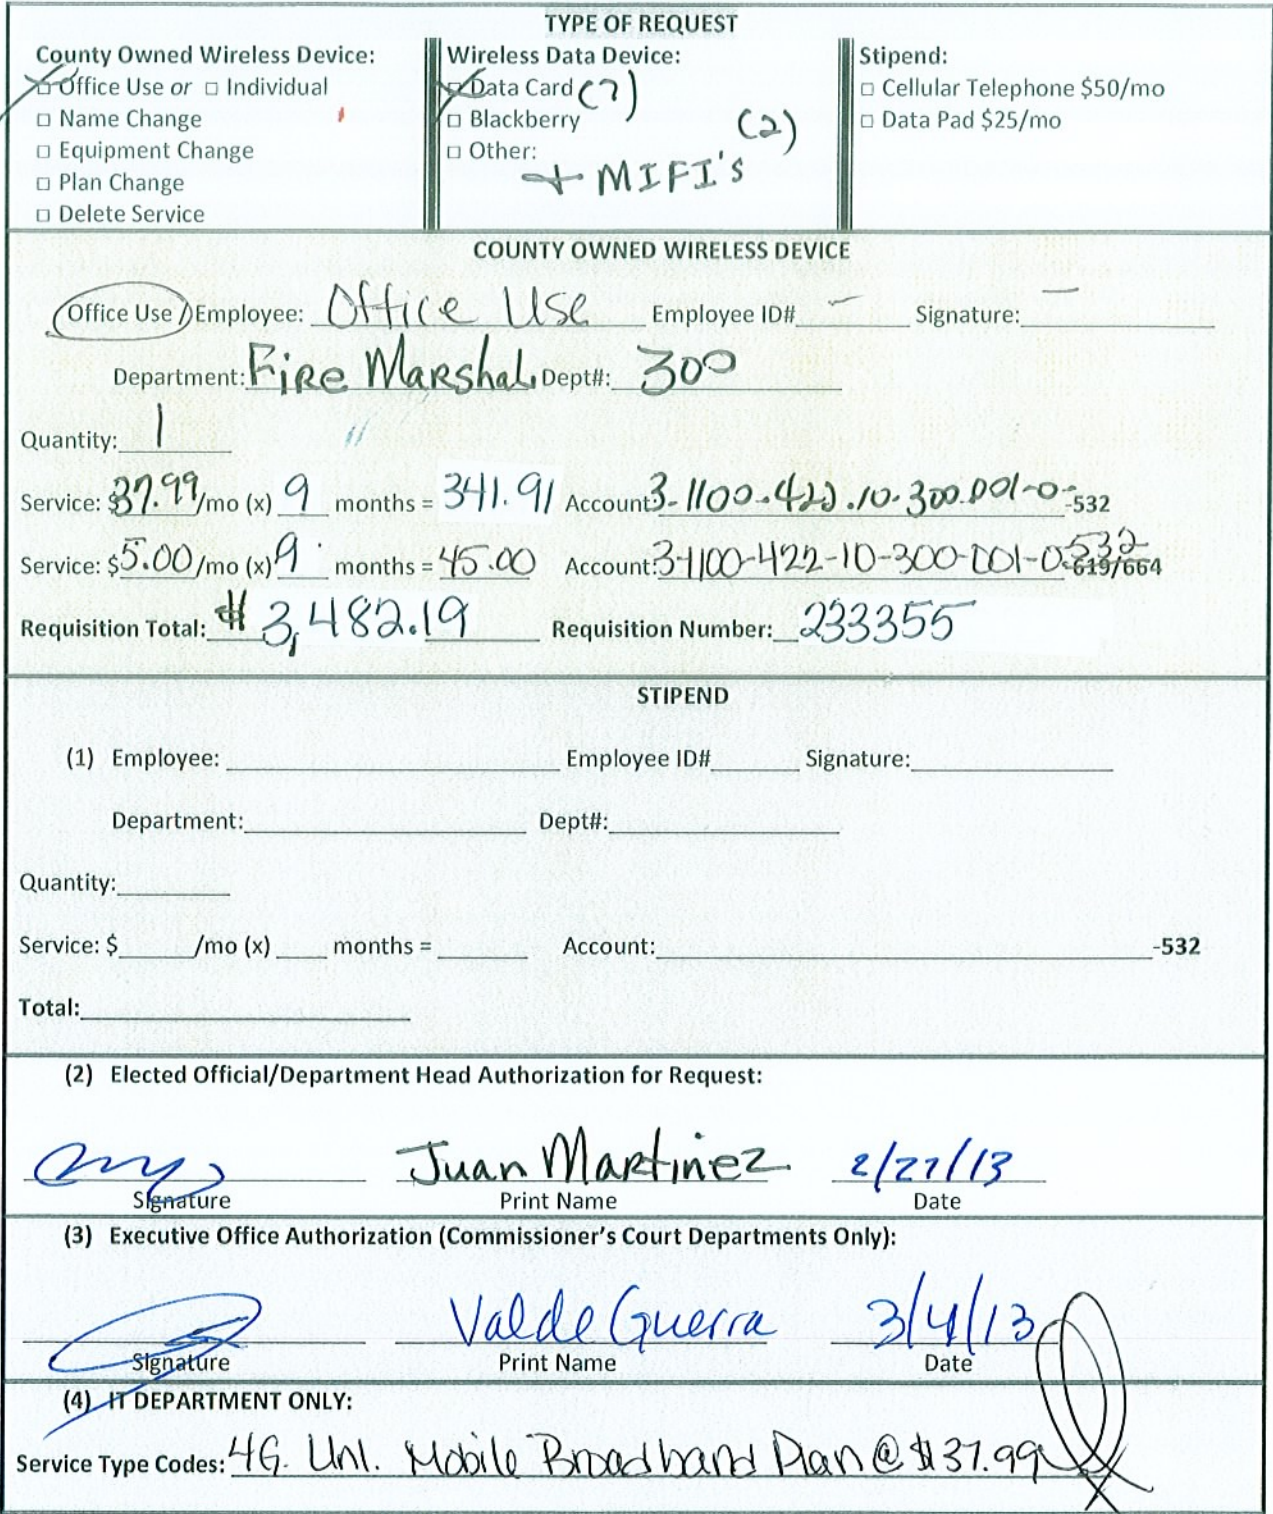 TYPE OF REQUEST
County Owned Wireless Device:
□ Office Use or □ Individual
□ Name Change
□ Equipment Change
□ Plan Change
□ Delete Service
Wireless Data Device:
□ Data Card (7)
□ Blackberry
□ Other: (2)
+ MIFI's
Stipend:
□ Cellular Telephone $50/mo
□ Data Pad $25/mo
COUNTY OWNED WIRELESS DEVICE
Office Use / Employee: Office Use Employee ID# — Signature: —
Department: Fire Marshal Dept#: 300
Quantity: 1
Service: $37.99/mo (x) 9 months = 341.91 Account: 3-1100-422-10-300-001-0--532
Service: $5.00/mo (x) 9 months = 45.00 Account: 3-1100-422-10-300-001-0-532 619/664
Requisition Total: $ 3,482.19 Requisition Number: 233355
STIPEND
(1) Employee: Employee ID# Signature:
Department: Dept#:
Quantity:
Service: $ /mo (x) months = Account: -532
Total:
(2) Elected Official/Department Head Authorization for Request:
Juan Martinez 2/27/13
Signature Print Name Date
(3) Executive Office Authorization (Commissioner's Court Departments Only):
Valde Guerra 3/4/13
Signature Print Name Date
(4) IT DEPARTMENT ONLY:
Service Type Codes: 4G. Unl. Mobile Broadband Plan @ $37.99